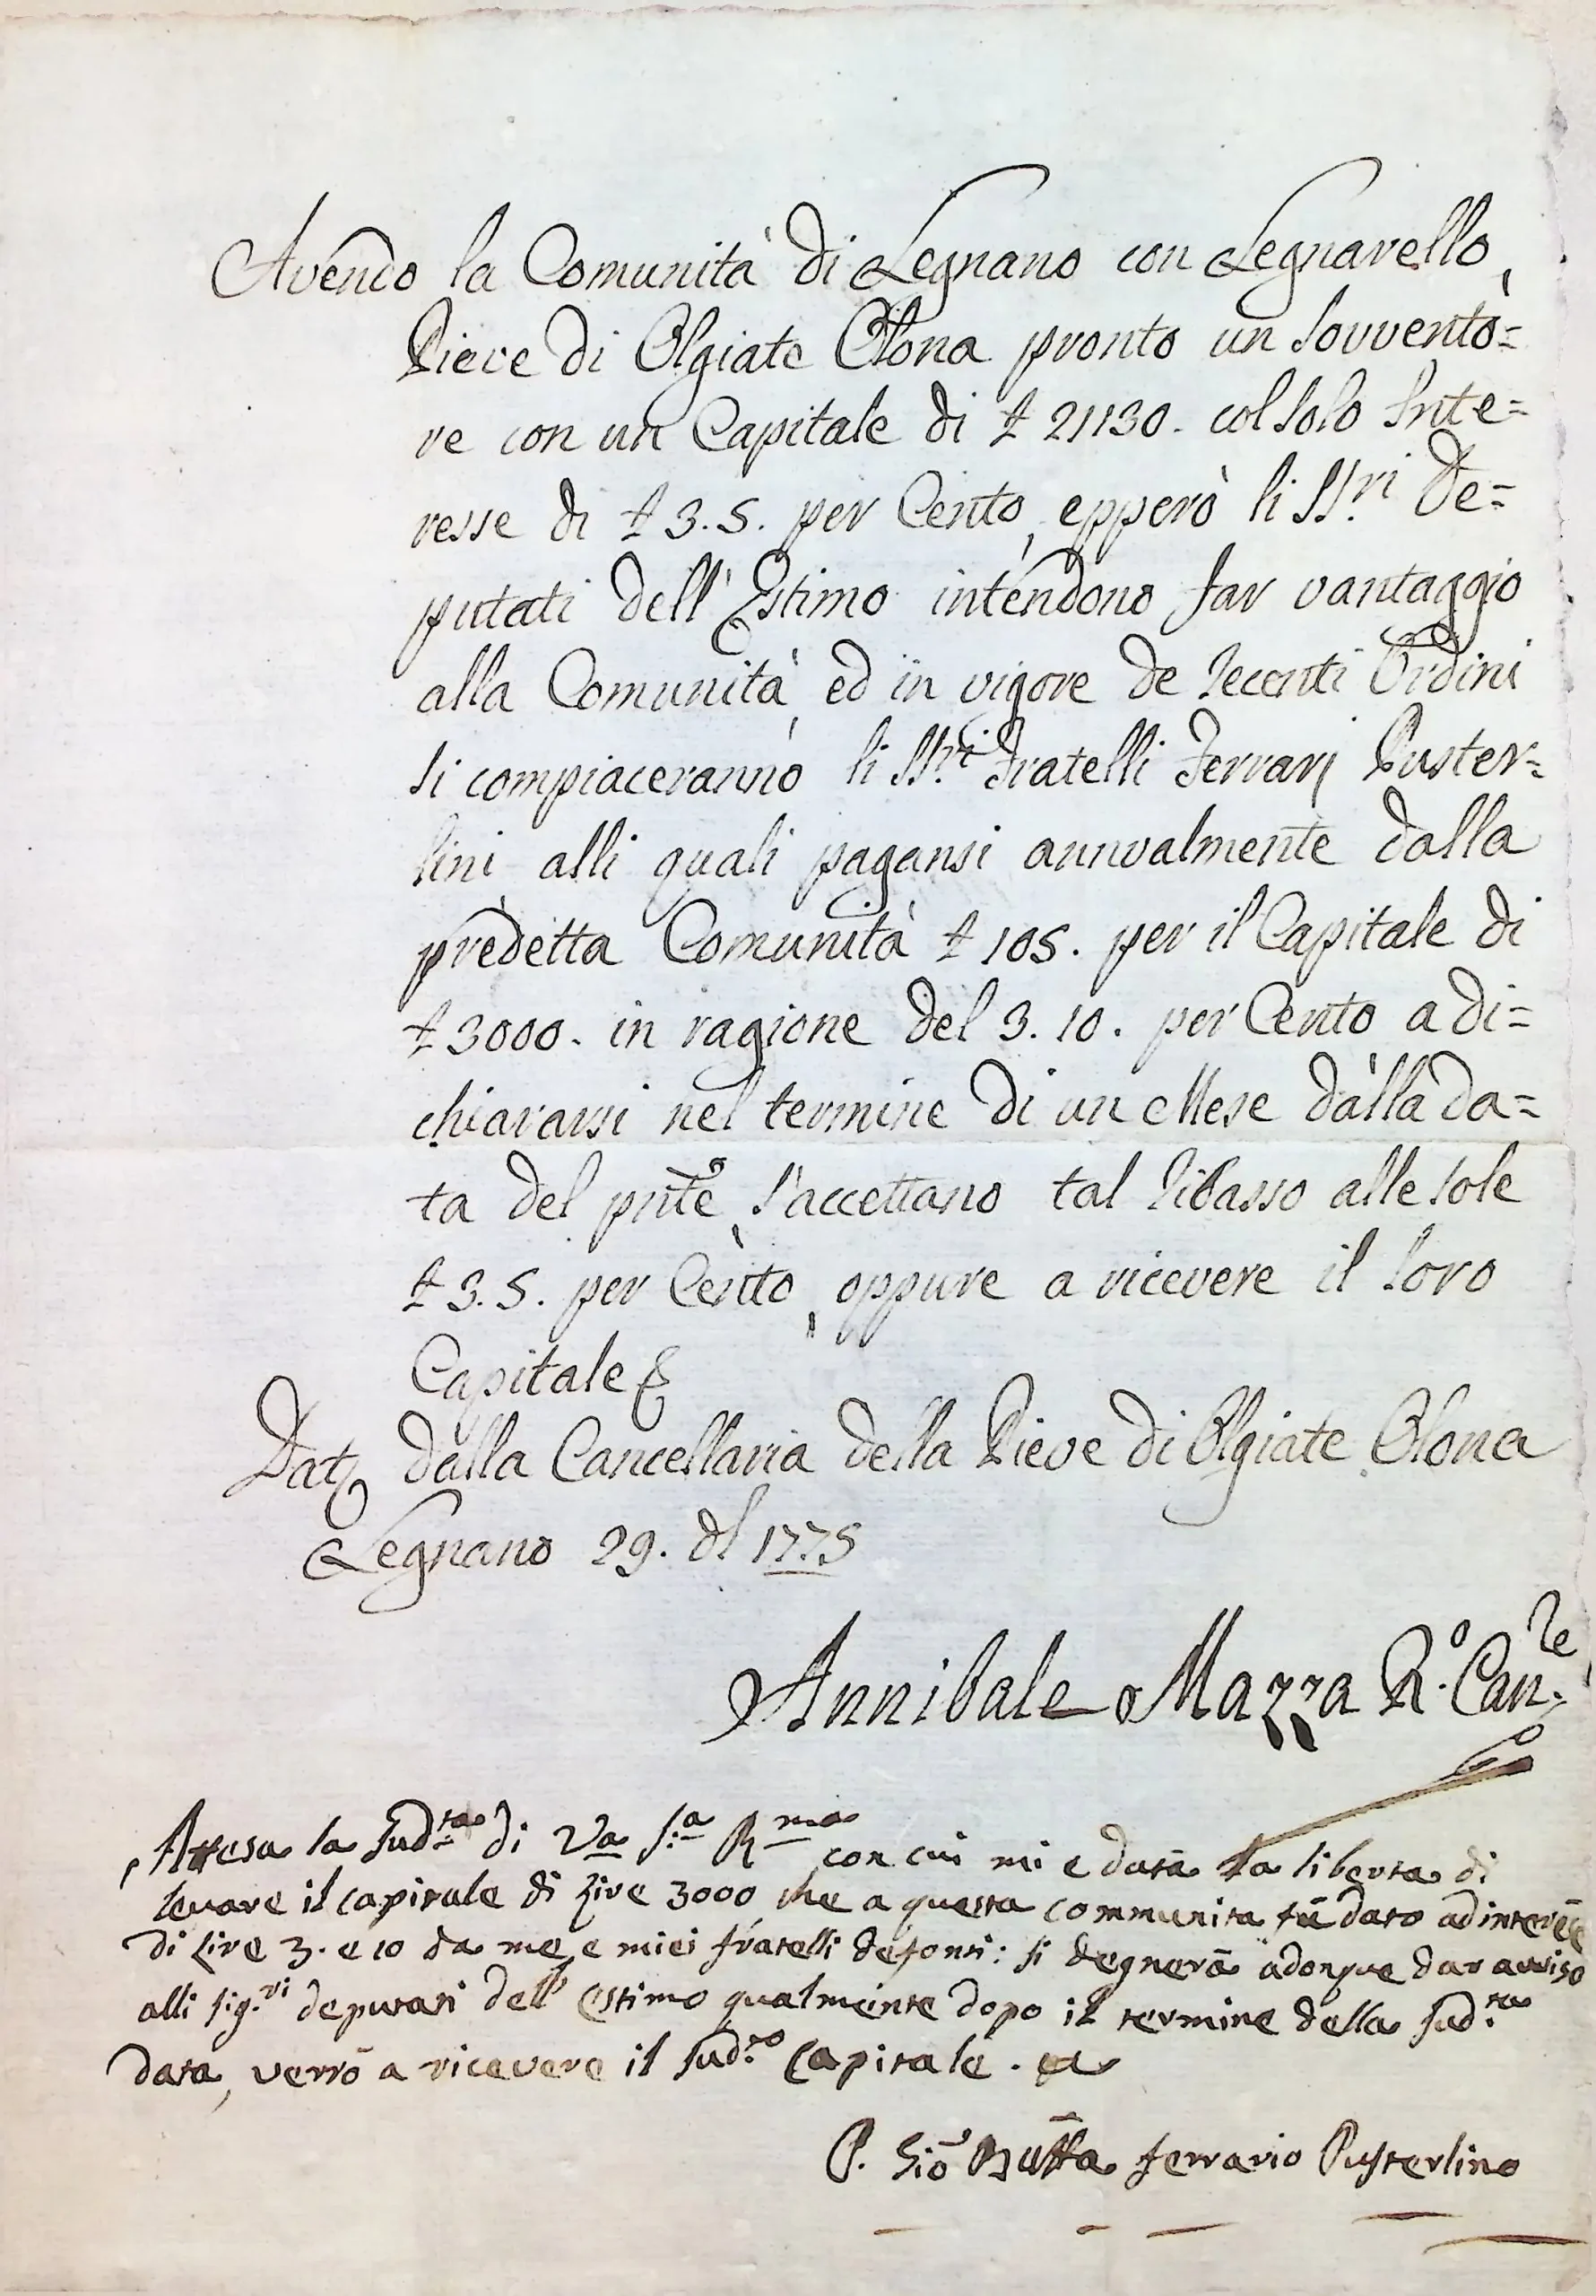 Avendo la Comunità di Legnano con Legnarello,
Pieve di Olgiate Olona pronto un Sovvento=
re con un Capitale di £ 21130. col solo Inte=
resse di £ 3. 5. per Cento, epperò li SS.ri De=
putati dell'Estimo intendono far vantaggio
alla Comunità, ed in vigore de recenti Ordini
si compiaceranno li SS.ri Fratelli Ferrarj Puster=
lini alli quali pagansi annualmente dalla
predetta Comunità £ 105. per il Capitale di
£ 3000. in ragione del 3. 10. per Cento a di=
chiararsi nel termine di un Mese dalla da=
ta del pnte, s'accettano tal ribasso alle sole
£ 3. 5. per Cento, oppure a ricevere il loro
Capitale &
Dat, dalla Cancellaria della Pieve di Olgiate Olona
Legnano 29. 1775
Annibale Mazza R.o Can.re
Attesa la sud.ta di Va S.a R.ma con cui mi e data la liberta di
levare il capitale di Lire 3000 che a questa communita fù dato ad interesse
di Lire 3. e 10 da me, e miei fratelli defonti: si degnerà adonque dar avviso
alli Sig.ri deputati dell'estimo qualmente dopo il termine della sud.ta
data, verrò a ricevere il sud.to Capitale.
P. Gio Batta Ferrario Pusterlino